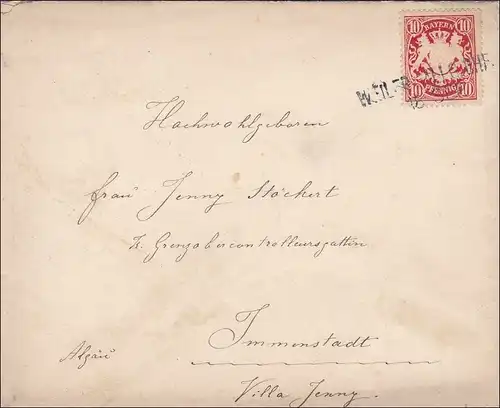 10 BAYERN 10
10 PFENNIG 10
WEILER
Hochwohlgeboren
Frau Jenny Stöckert
k. Grenzobercontrolleursgattin
Immenstadt
Algäu
Villa Jenny.